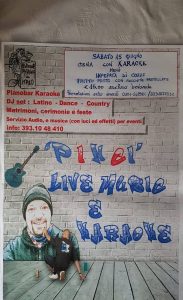 SABATO 15 GIUGNO
CENA CON KARAOKE
IMPEPATA DI COZZE
€ 15.00 escluso bevande
Pianobar Karaoke
DJ set : Latino - Dance - Country
Matrimoni, cerimonie e feste
Servizio Audio, e musica (con luci ed effetti) per eventi
Info: 393.10 48 410
'Pixel'
LIVE MUSIC
E
KARAOKE